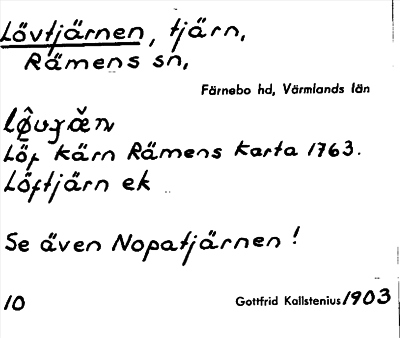 Lövtjärnen, tjärn,
Rämens sn,
Färnebo hd, Värmlands län
Löf kärn Rämens Karta 1763.
Löftjärn ek
Se även Nopatjärnen!
10 Gottfrid Kallstenius 1903